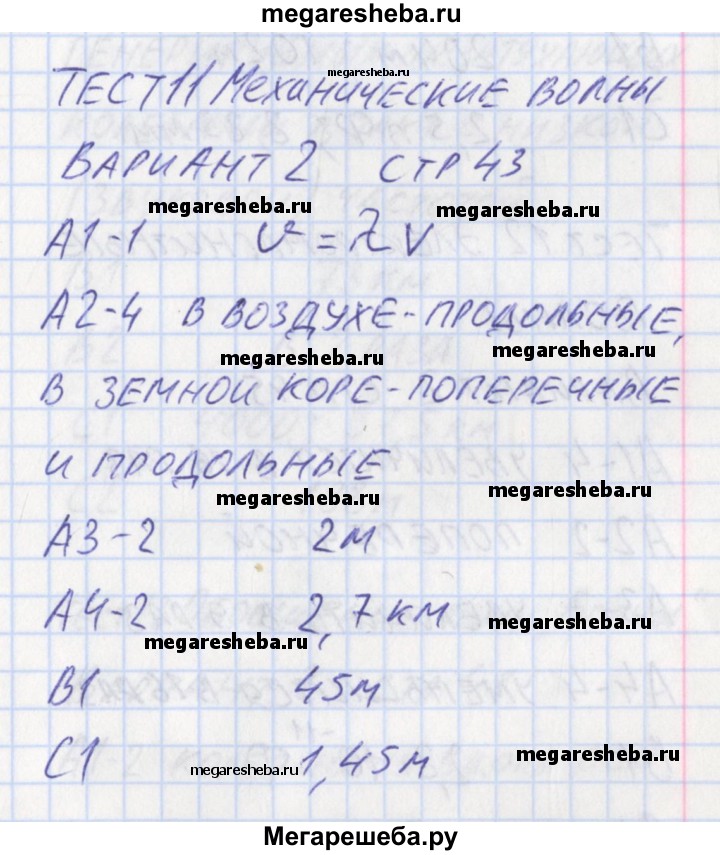 megaresheba.ru
ТЕСТ 11 МЕХАНИЧЕСКИЕ ВОЛНЫ
megaresheba.ru
ВАРИАНТ 2 СТР 43
megaresheba.ru megaresheba.ru
А1-1 v = λν
А2-4 В ВОЗДУХЕ-ПРОДОЛЬНЫЕ,
megaresheba.ru megaresheba.ru
В ЗЕМНОЙ КОРЕ-ПОПЕРЕЧНЫЕ
И ПРОДОЛЬНЫЕ
megaresheba.ru megaresheba.ru
А3-2 2м
А4-2 2,7 км
megaresheba.ru megaresheba.ru
В1 45м
С1 1,45м
megaresheba.ru megaresheba.ru
Мегарешеба.ру